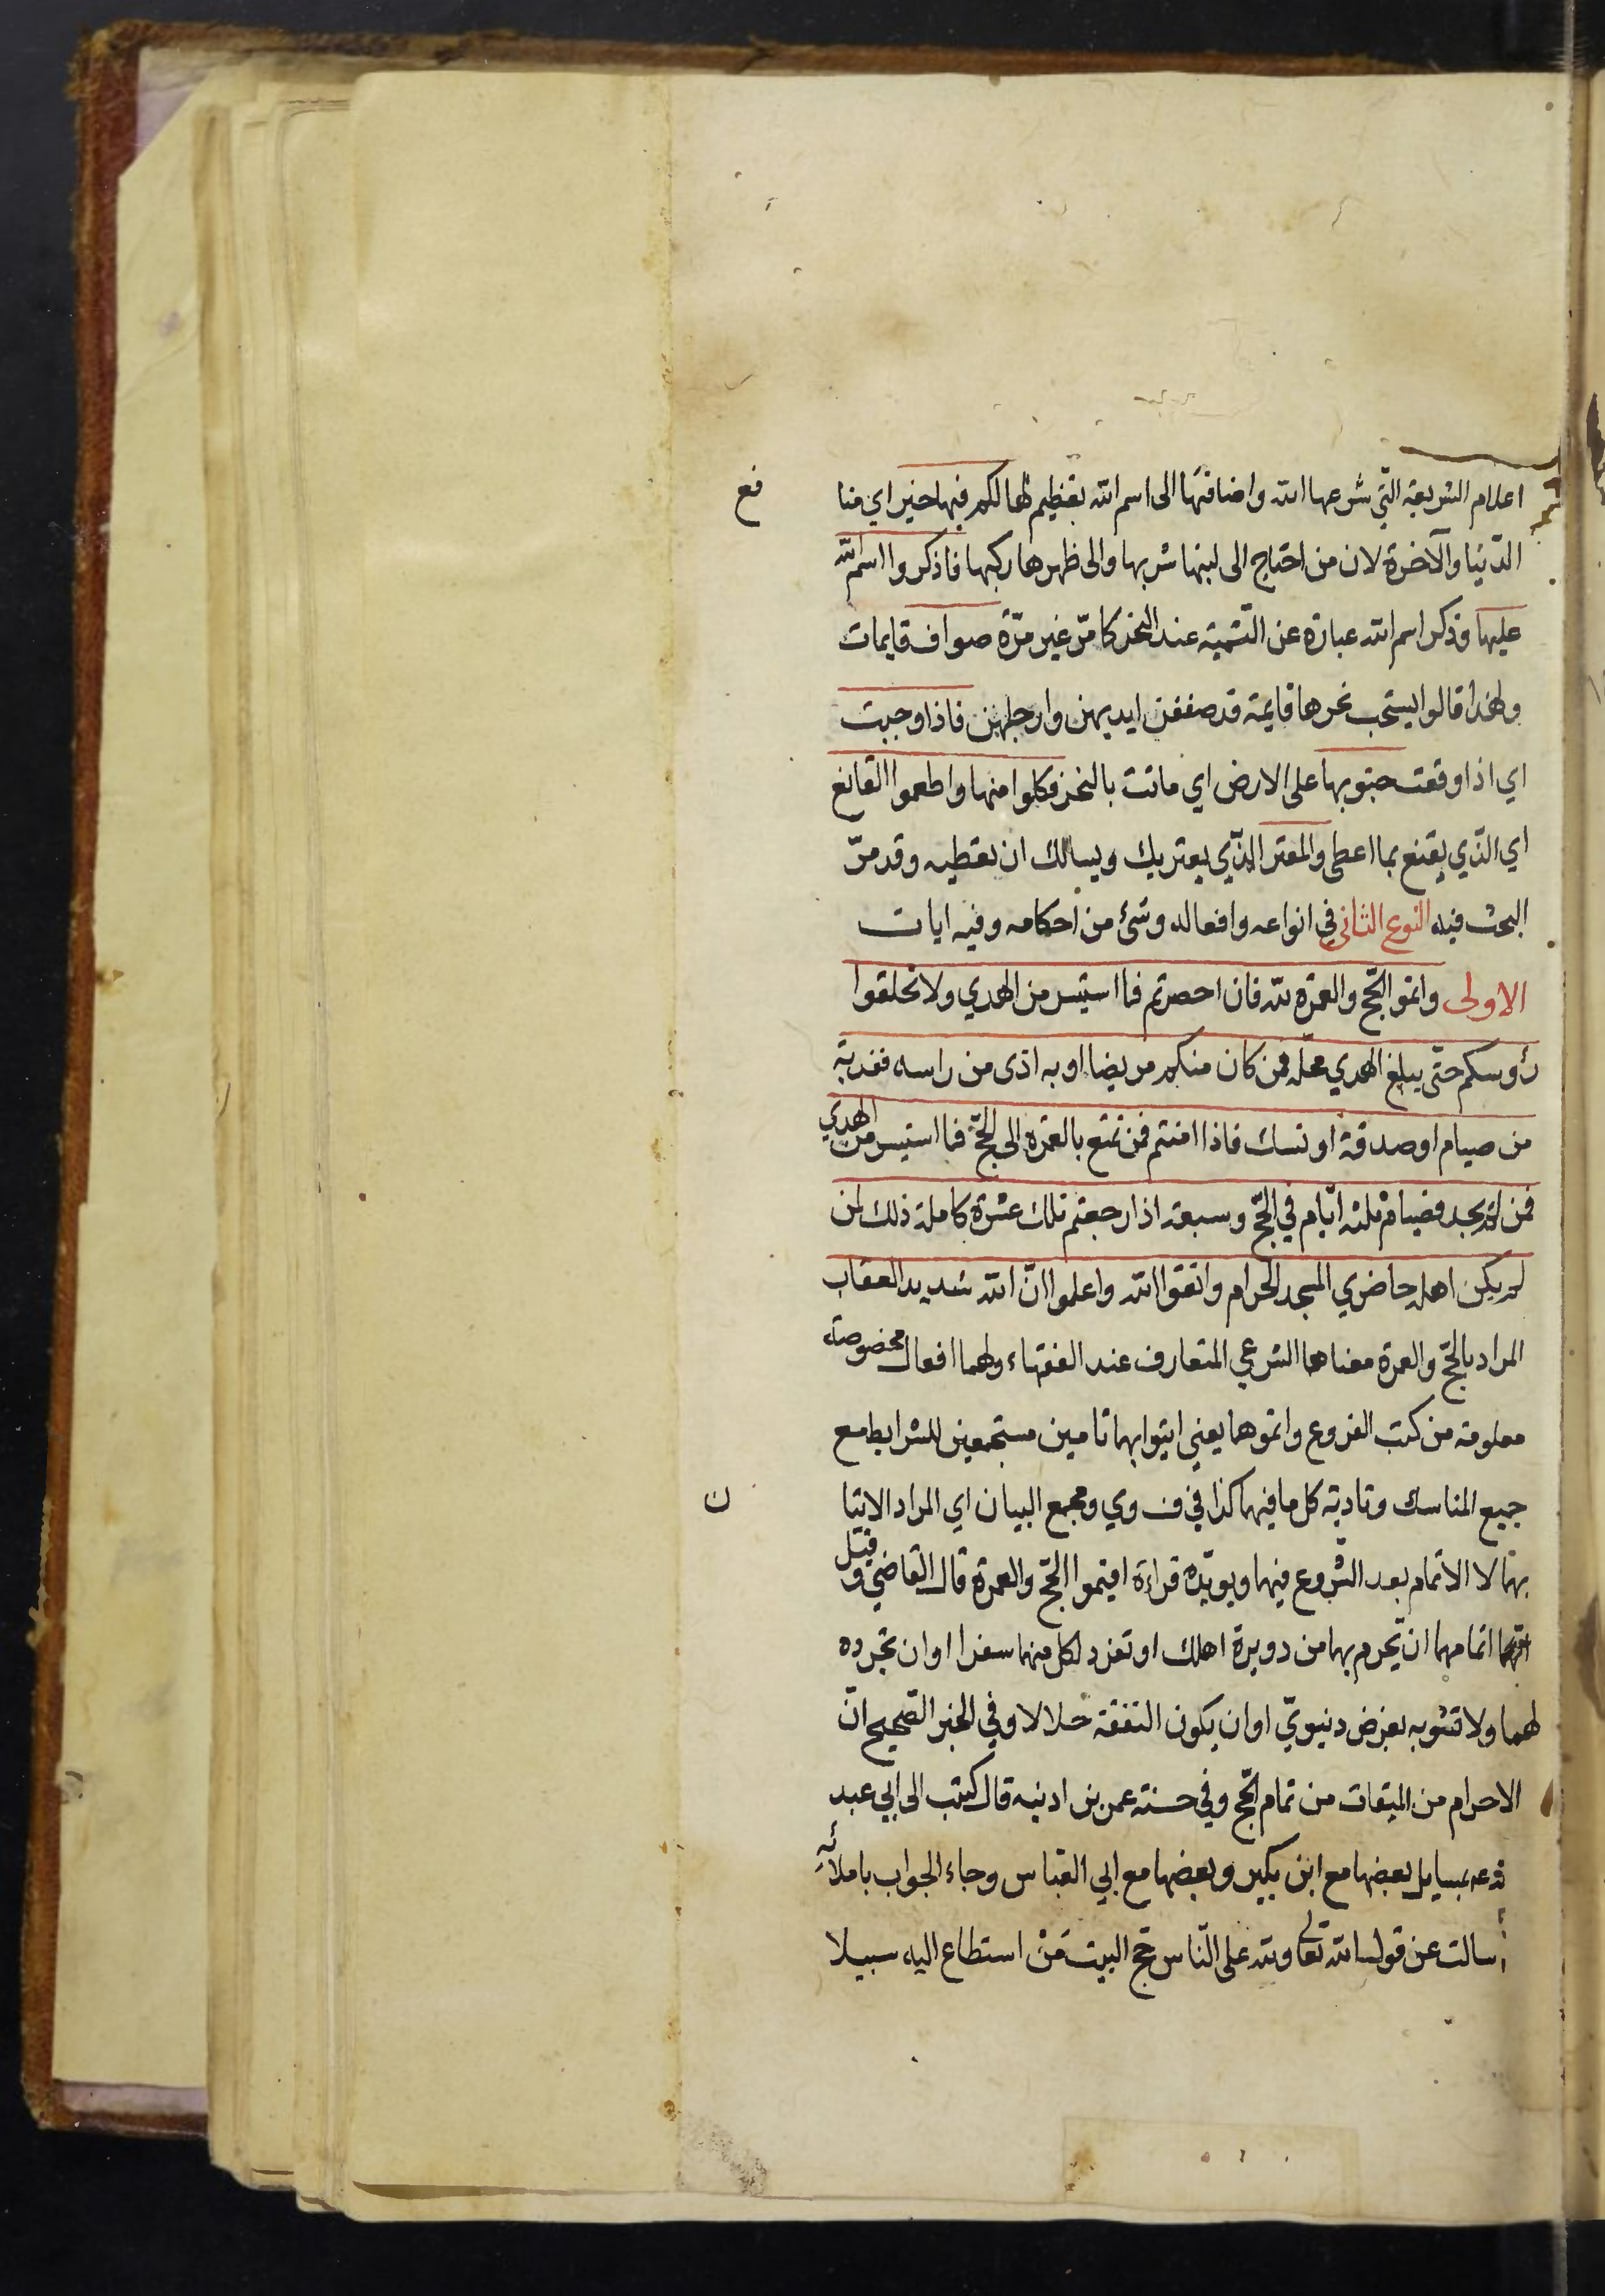 اعلام الشريعة التي شرعها الله واضافتها الى اسم الله تعظيم لها لكم فيها خير اي منا فع
الدنيا والآخرة لان من احتاج الى لبنها شربها والى ظهرها ركبها فاذكروا اسم الله
عليها وذكر اسم الله عبارة عن التسمية عند النحر كما مرّ غير مرّة صواف قايمات
ولهذا قالوا يستحب نحرها قايمة قد صففن ايديهن وارجلهن فاذا وجبت
اي اذا وقعت جنوبها على الارض اي ماتت بالنحر فكلوا منها واطعموا القانع
اي الذي يقنع بما اعطى والمعتر الذي يعتريك ويسالك ان تعطيه وقد مرّ
البحث فيه النوع الثانى في انواعه وافعاله وشئ من احكامه وفيه ايات
الاولى واتموا الحج والعمرة لله فان احصرتم فما استيسر من الهدي ولا تحلقوا
رؤوسكم حتى يبلغ الهدي محله فمن كان منكم مريضا او به اذى من راسه ففدية
من صيام او صدقة او نسك فاذا امنتم فمن تمتع بالعمرة الى الحجّ فما استيسر من الهدي
فمن لم يجد فصيام ثلثة ايّام في الحجّ وسبعة اذا رجعتم تلك عشرة كاملة ذلك لمن
لم يكن اهله حاضري المسجد الحرام واتقوا الله واعلموا انّ الله شديد العقاب
المراد بالحجّ والعمرة معناهما الشرعي المتعارف عند الفقهاء ولهما افعال مخصوصة
معلومة من كتب الفروع واتموهما يعني ايتوا بهما تامين مستجمعين للشرايط مع
جميع المناسك وتادية كل ما فيهما كذا في ف وي ومجمع البيان اي المراد الاتيا ن
بهما لا الاتمام بعد الشروع فيهما ويويّده قراءة اقيموا الحجّ والعمرة قال القاضي وقيل
اتمامهما ان تحرم بهما من دويرة اهلك او تفرد لكل منهما سفرا او ان تجرده
لهما ولا تشوبه بغرض دنيويّ او ان يكون النفقة حلالا وفي الخبر الصحيح انّ
الاحرام من الميقات من تمام الحج وفي حسنة عمر بن اذينه قال كتبت الى ابي عبد
بمسايل بعضها مع ابن بكير وبعضها مع ابي العباس وجاء الجواب باملائه
سالت عن قول الله تعالى ولله على الناس حج البيت من استطاع اليه سبيلا